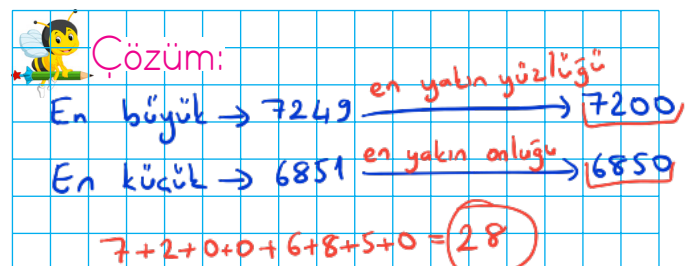 Çözüm:
En büyük → 7249 en yakın yüzlüğü → 7200
En küçük → 6851 en yakın onluğu → 6850
7+2+0+0+6+8+5+0 = 28